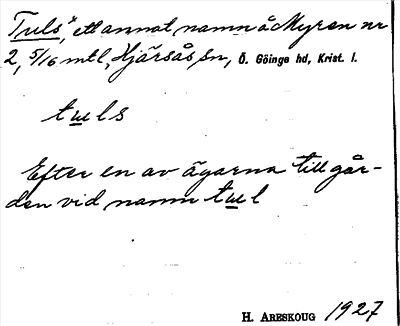 Truls", ett annat namn å Myren nr
2, 5/16 mtl, Hjärsås sn, Ö. Göinge hd, Krist. l.
tuls
Efter en av ägarna till går-
den vid namn tul
H. ARESKOUG 1927